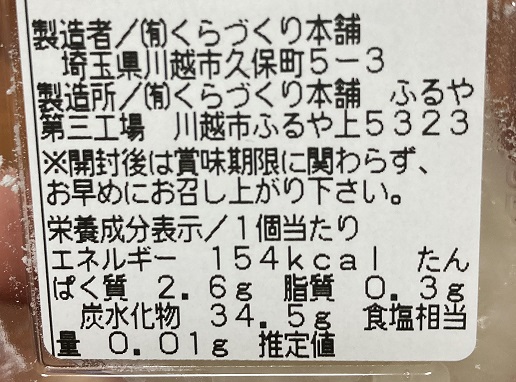 製造者/(有)くらづくり本舗
埼玉県川越市久保町5-3
製造所/(有)くらづくり本舗 ふるや
第三工場 川越市ふるや上5323
※開封後は賞味期限に関わらず、
お早めにお召し上がり下さい。
栄養成分表示/1個当たり
エネルギー 154kcal たん
ぱく質 2.6g 脂質 0.3g
炭水化物 34.5g 食塩相当
量 0.01g 推定値